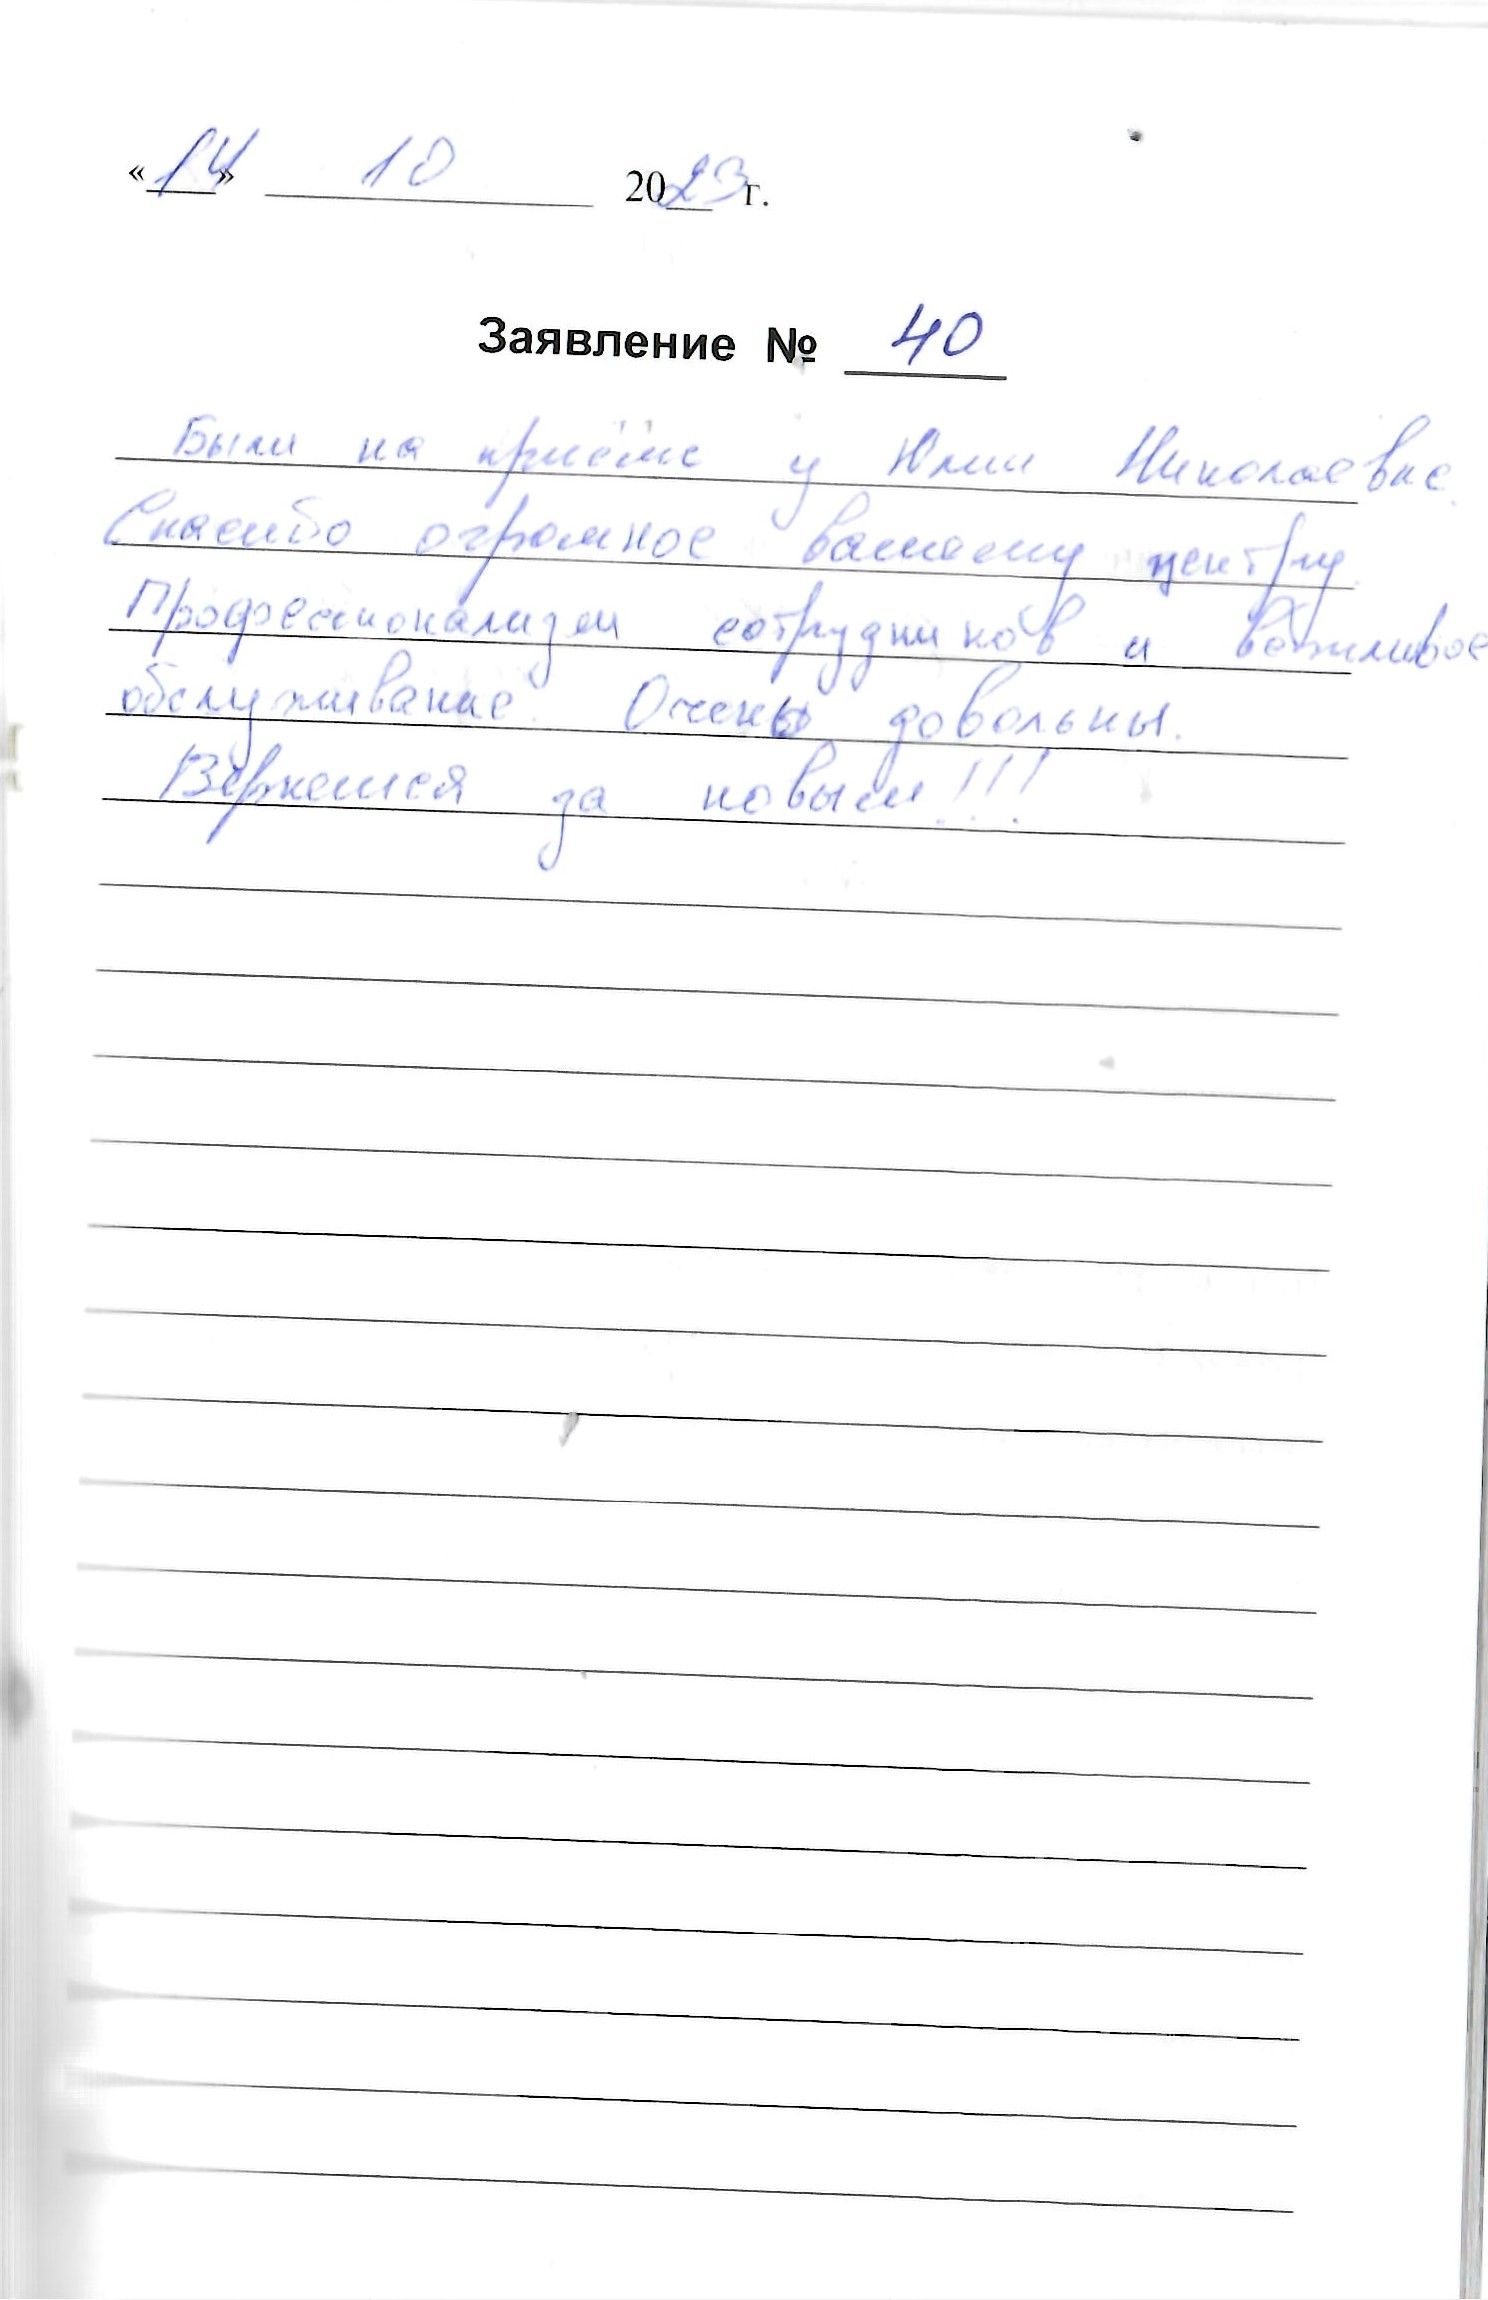 «14» 10 2023 г.
Заявление № 40
Были на приёме у Юлии Николаевне.
Спасибо огромное вашему центру.
Профессионализм сотрудников и вежливое
обслуживание. Очень довольны.
Вернемся за новым!!!